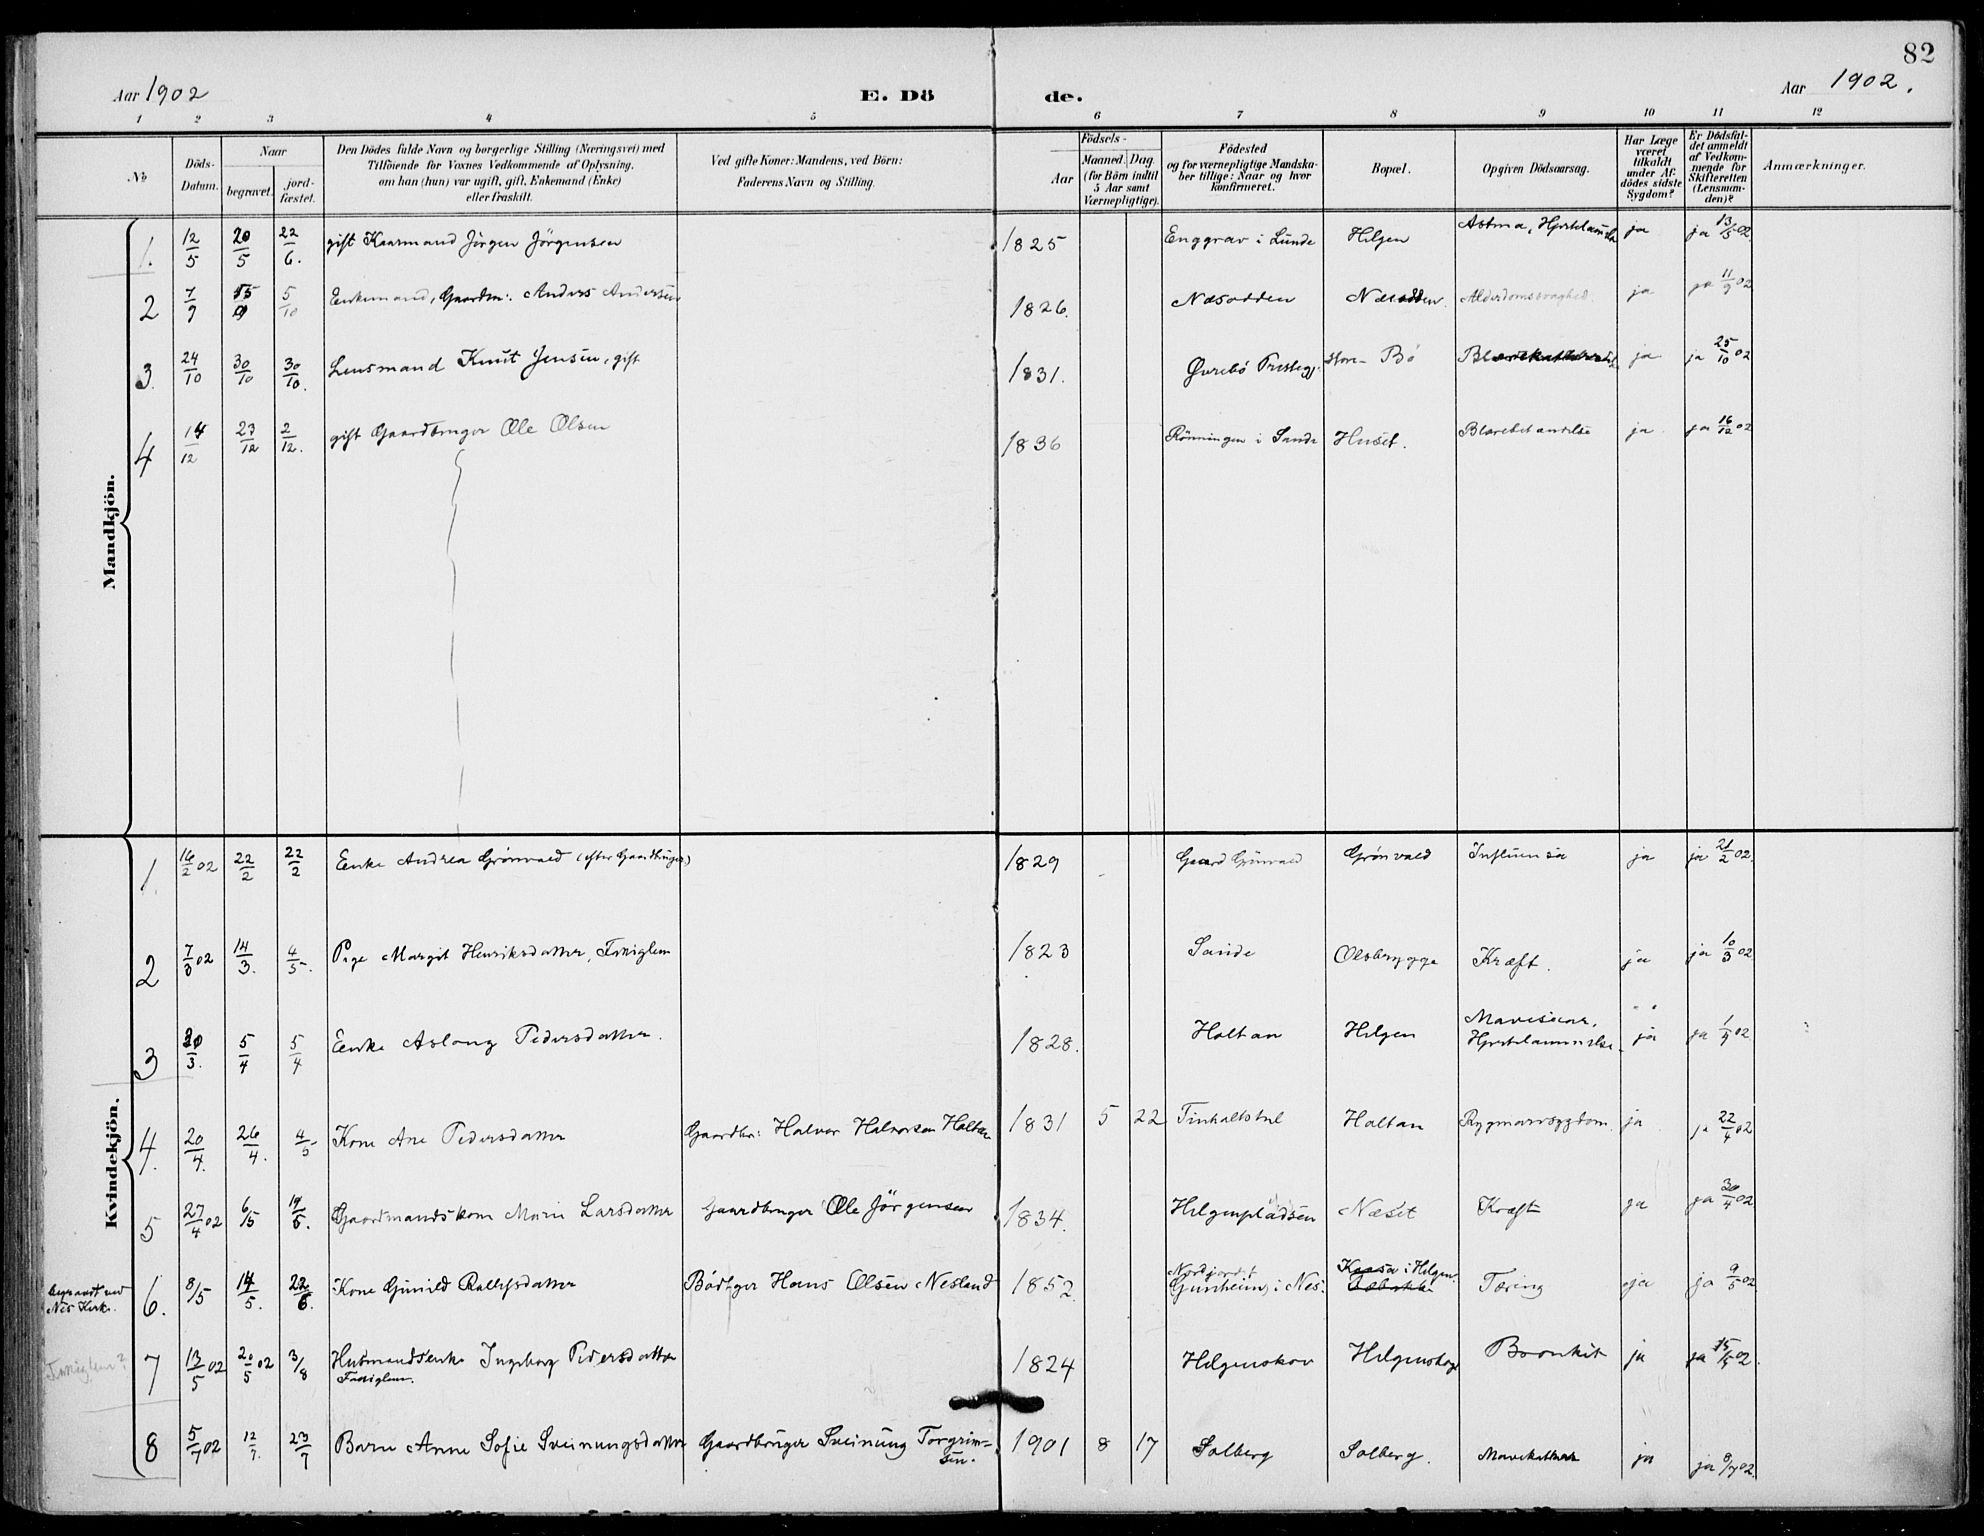 82
Aar 1902
E. Dö de.
Aar 1902.
1 2 3 4 5 6 7 8 9 10 11 12
№
Döds-Datum.
Naar
begravet.
jord-fæstet.
Den Dödes fulde Navn og borgerlige Stilling (Næringsvei) med
Tilföiende for Voxnes Vedkommende af Oplysning,
om han (hun) var ugift, gift, Enkemand (Enke)
eller fraskilt.
Ved gifte Koner: Mandens, ved Börn:
Faderens Navn og Stilling.
Födsels-
Aar
Maaned. Dag.
(for Börn indtil
5 Aar samt
Værnepligtige).
Födested
og for værnepligtige Mandska-
ber tillige: Naar og hvor
konfirmeret.
Bopæl.
Opgiven Dödsaarsag.
Har Læge
været
tilkaldt
under Af-
dödes sidste
Sygdom?
Er Dödsfal-
det anmeldt
af Vedkom-
mende for
Skifteretten
(Lensman-
den)?
Anmærkninger.
Mandkjön.
1. 12/5 20/5 22/6. gift Kaarmand Jörgen Jörgensen 1825 Enggrav i Lunde Helgen Astma, ja ja 13/5 02
2 7/9 15/9 5/10 Enkemand, Gaardm: Anders Andersen 1826. Næsodden Næsodden. Alderdomssvaghed. ja ja 11/9 02
3. 24/10 30/10 30/10. Lensmand Knut Jensen, gift 1831. Øvrebö Prestegj: store- Bö ja ja 25/10 02
4 14/12 23/12 2/12. gift Gaardbruger Ole Olsen 1836 Rönningen i Sande Huset. Blærebetændelse ja ja 16/12 02
Kvindekjön.
1. 16/2 02 22/2 22/2 Enke Andrea Grönvald (efter Gaardbruger) 1829 Gaard Grönvald Grönvald Influensa ja ja 21/2 02.
2 7/3 02 14/3. 4/5. Pige Margit Henriksdatter, Fattiglem 1823 Sande Olsbrygge Kræft. ja ja 10/3 02
3 30/3. 5/4 5/4 Enke Aslaug Pedersdatter. 1828. Holtan Helgen Mavesaar, Hjertelammelse ja ja 1/4 02
4. 20/4. 26/4. 4/5 Kone Ane Pedersdatter Gaardbr: Halvor Halvorsen Holtan 1831 5 22 Holtan Rygmarvsygdom. ja ja 22/4 02
5 27/4 02 6/5 14/5. Gaardmandskone Marie Larsdatter Gaardbruger Ole Jörgensen 1834. Helgenpladsen Næset Kræft ja ja 30/4 02
begravet ved
Nes Kirke.
6. 8/5 14/5. 22/6. Kone Gunild Rollefsdatter Bödker Hans Olsen Nesland 1852. Nordjordet Gunheim, i Nes. Kaasa i Helgen. Tæring ja ja 9/5 02
Fattiglem?
7 13/5 02 20/5 02 3/8 Husmandsenke Ingeborg Pedersdatter
Fattiglem. 1824 Helgenskov Helgenshage Bronkit ja ja 15/5 02.
8 5/7 02 12/7. 23/7 Barn Anne Sofie Sveinungsdatter Gaardbruger Sveinung Torgrim-
sen. 1901 8 17 Solberg Solberg. Mavekatarr ja ja 8/7 02.